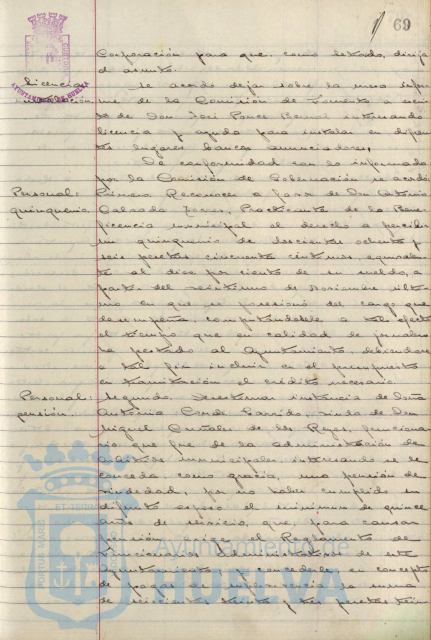 69
Corporación para que, como letrado, dirija
el asunto.
Licencia
instalación.
Se acordó dejar sobre la mesa infor
me de la Comisión de Fomento a escri
to de Don José Ponce Bernal interesando
licencia y ayuda para instalar en diferen
tes lugares bancos anunciadores.
De conformidad con lo informado
por la Comisión de Gobernación se acordó:
Personal:
quinquenio.
Primero. Reconocer a favor de Don Antonio
Calzado Torres, Practicante de la Bene
ficencia municipal el derecho a percibir
un quinquenio de doscientas ochenta y
seis pesetas cincuenta céntimos, equivalen
te al diez por ciento de su sueldo, a
partir del veintiuno de Noviembre últi
mo en que se posesionó del cargo que
desempeña, computándosele a tal efecto
el tiempo que en calidad de
ha prestado al Ayuntamiento, debiendose
a tal fin incluir en el presupuesto
en tramitación el crédito necesario.
Personal:
pensión.
Segundo. Desestimar instancia de Doña
Antonia Conde Garrido, viuda de Don
Miguel de los Reyes, funciona
rio que fue de la administración de
arbitrios municipales interesando se le
conceda, como gracia, una pensión de
viudedad, por no haber cumplido su
difunto esposo el mínimum de quince
años de servicio, que, para causar
pensión exige el Reglamento de
funcionarios administrativos de este
Ayuntamiento y concederle en concepto
de pagas de supervivencia la suma
de seiscientas treinta y tres pesetas trein
Ayuntamiento de
HUELVA